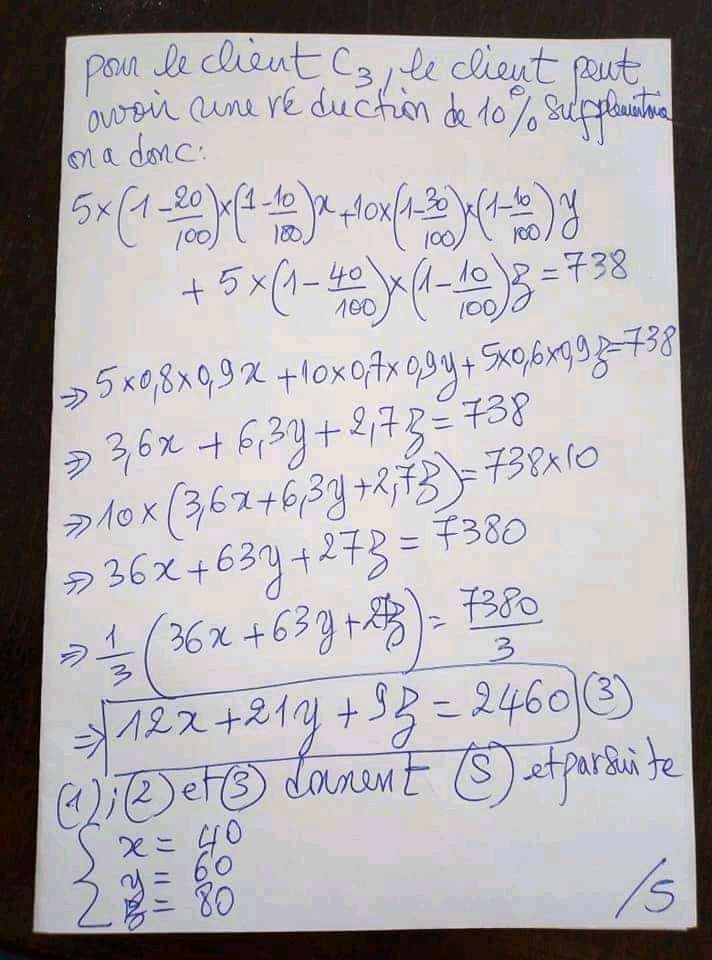 pour le client C₃, le client peut
avoir une réduction de 10% supplémentaire
on a donc:
5×(1-20/100)×(1-10/100)x+10×(1-30/100)×(1-10/100)y
+5×(1-40/100)×(1-10/100)z=738
⇒ 5×0,8×0,9x+10×0,7×0,9y+5×0,6×0,9z=738
⇒ 3,6x+6,3y+2,7z=738
⇒ 10×(3,6x+6,3y+2,7z)=738×10
⇒ 36x+63y+27z=7380
⇒ 1/3(36x+63y+27z)=7380/3
⇒ 12x+21y+9z=2460 (3)
(1);(2) et (3) donnent (S) et par suite
{ x=40
y=60
z=80
/5